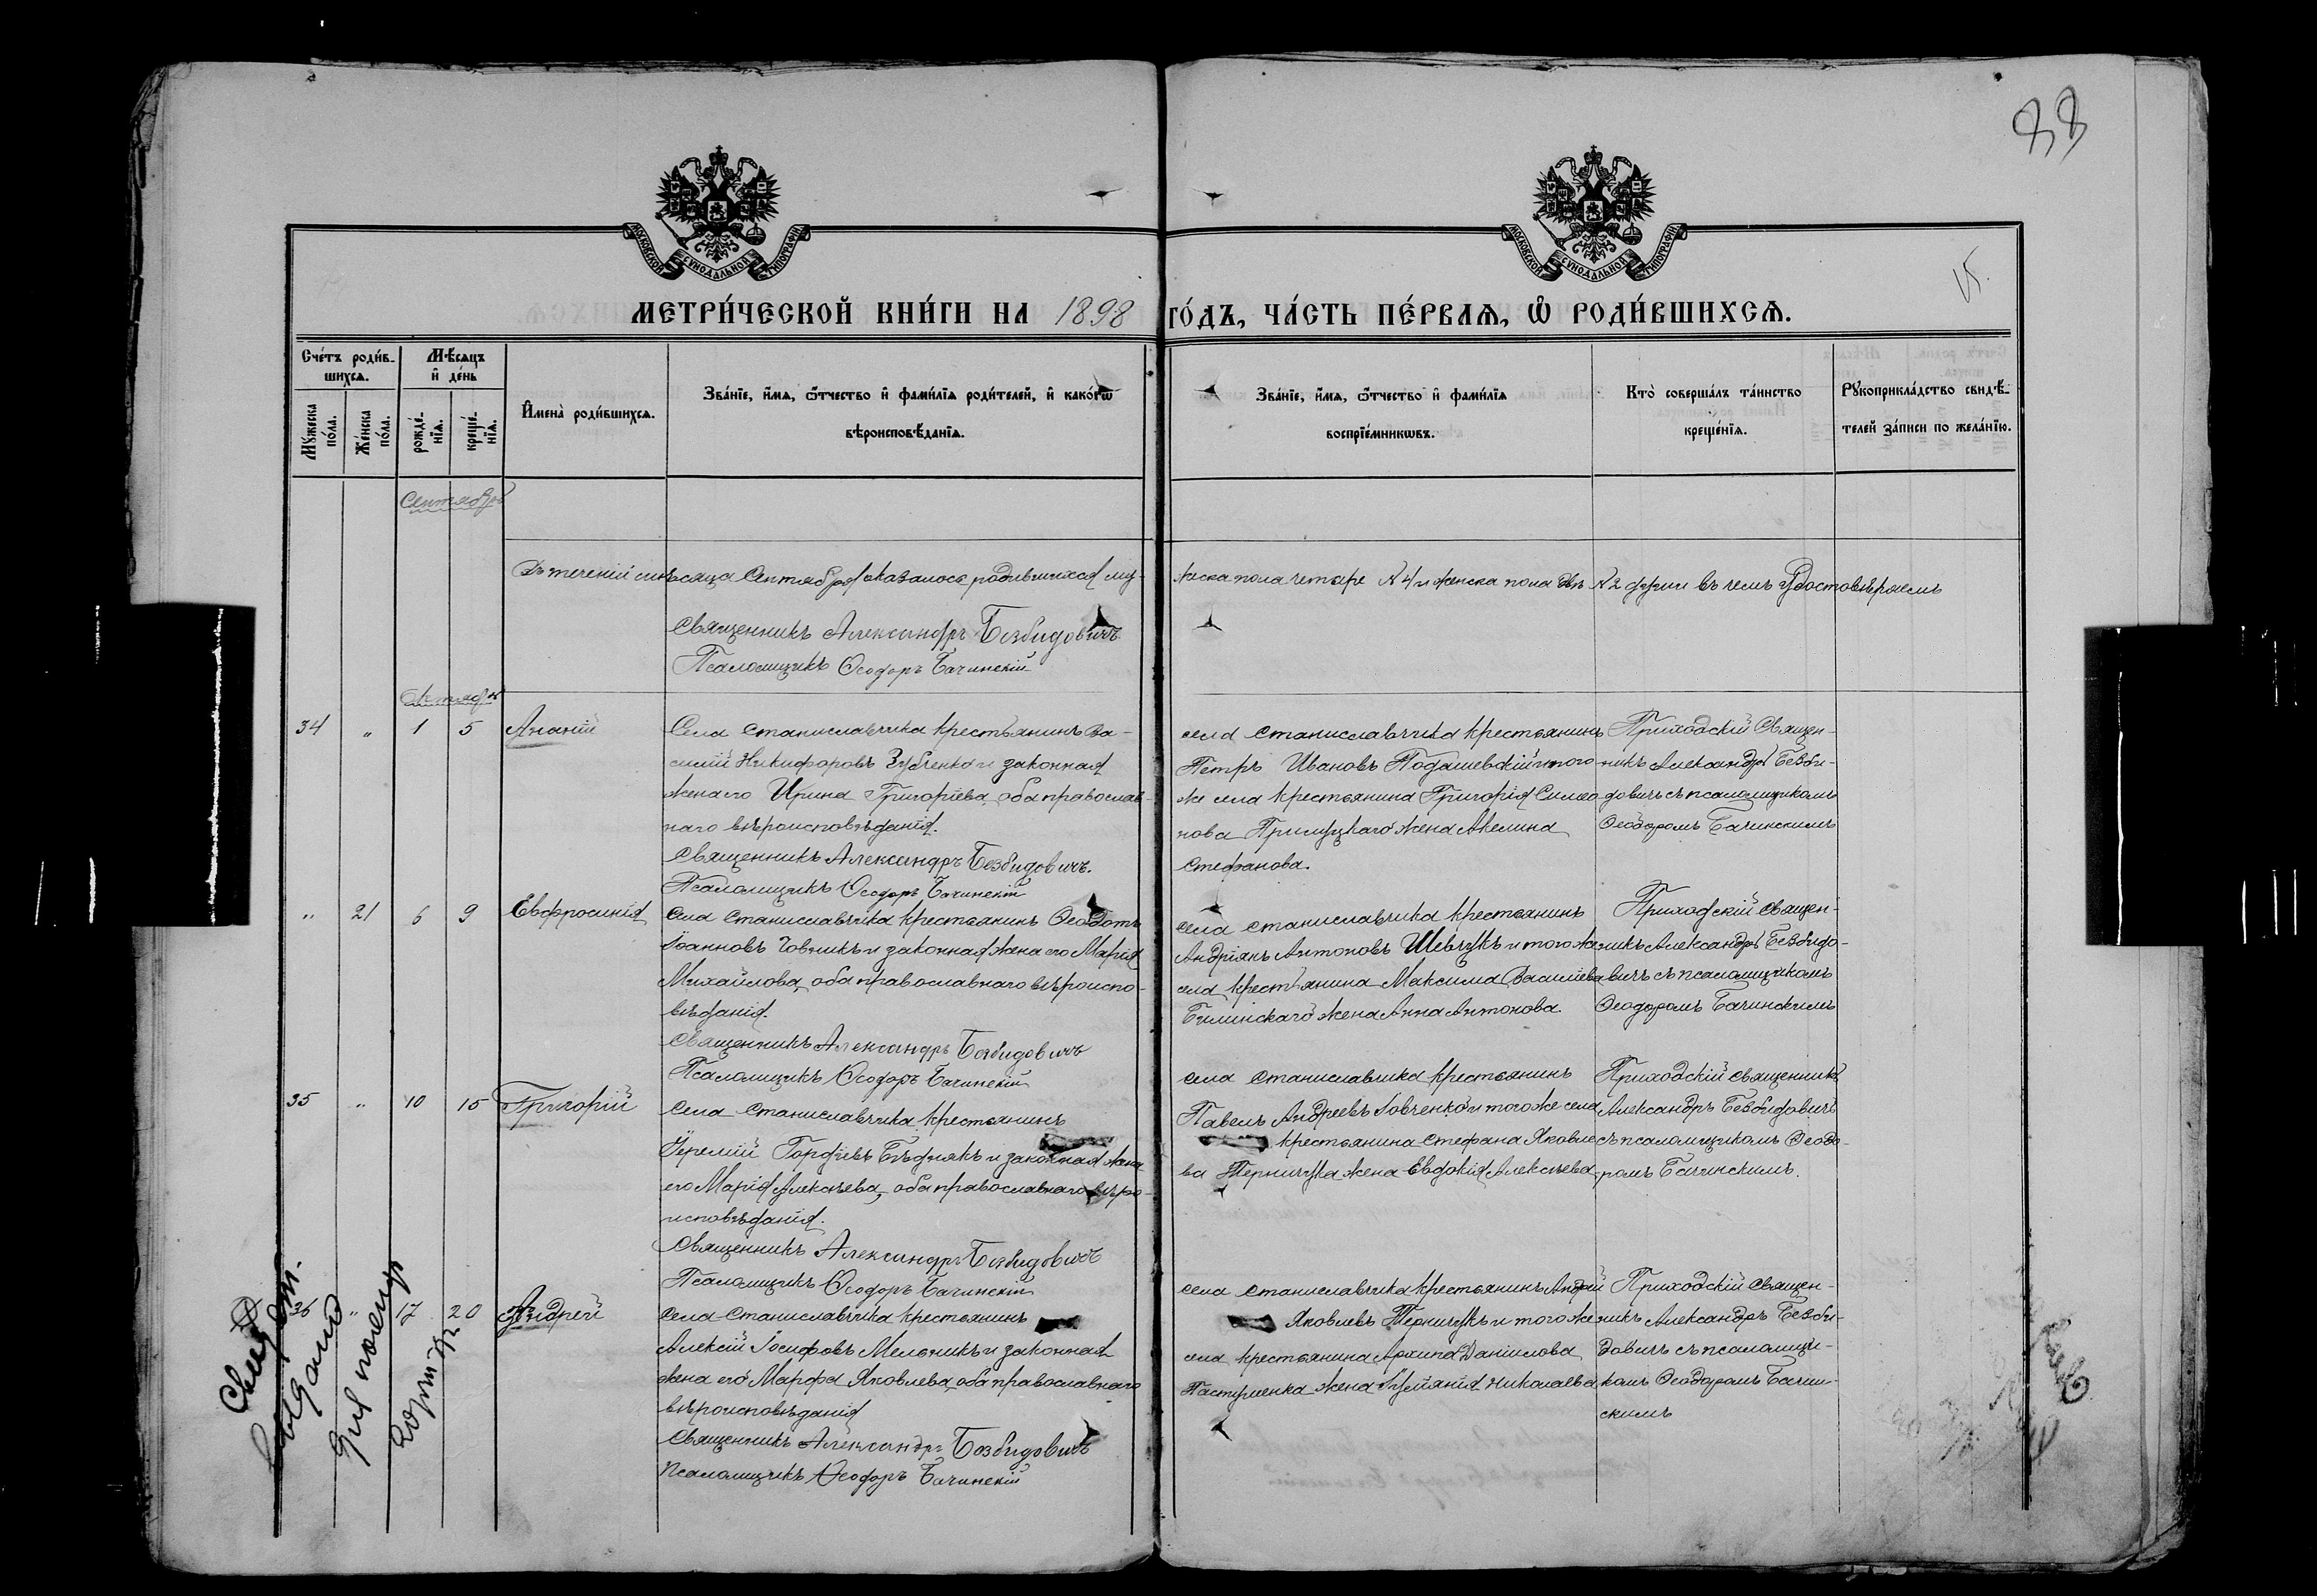 88
15.
МОСКОВСКОЙ СУНОДАЛЬНОЙ ТИПОГРАФІИ
МОСКОВСКОЙ СУНОДАЛЬНОЙ ТИПОГРАФІИ
МЕТРИ́ЧЕСКОЙ КНИ́ГИ НА 1898 ГО́ДЪ, ЧА́СТЬ ПЕ́РВАѦ, Ѡ РОДИ́ВШИХСѦ.
Сче́тъ роди́в-
шихсѧ.
Мꙋжеска по́ла.
Же́нска по́ла.
Мѣ́сѧцъ и де́нь
рожде́-нїѧ.
креще́-нїѧ.
И҆мена̀ роди́вшихсѧ.
Зва́нїе, и҆́мѧ, ѻ҆́тчество и҆ фами́лїѧ роди́телей, и҆ како́гѡ
вѣроисповѣ́данїѧ.
Зва́нїе, и҆́мѧ, ѻ҆́тчество и҆ фами́лїѧ
воспрїе́мникѡвъ.
Кто̀ соверша́лъ та́инство
креще́нїѧ.
Рꙋкоприкла́дство свидѣ́-
телей за́писи по жела́нїю.
Сентябрь
Въ теченіи мѣсяца Сентября оказалось родившихся муж-
жеска пола четыре N 4 и женска пола двѣ N 2 души въ чемъ удостовѣряемъ
Священникъ Александръ Безбидовичъ
Псаломщикъ Ѳеодоръ Бачинскій
Октябрь
34 " 1 5 Ананій
Села Станиславчика крестьянинъ Ва-
силій Никифоровъ Зубленко и законная
жена его Ирина Григоріева, оба православ-
наго вѣроисповѣданія.
Священникъ Александръ Безбидовичъ.
Псаломщикъ Ѳеодоръ Бачинскій
села Станиславчика крестьянинъ
Петръ Ивановъ Подашевскій и того
же села крестьянина Григорія Симео-
нова Прилуцкаго жена Акелина
Стефанова.
Приходскій Священ-
никъ Александръ Безби-
довичъ съ псаломщикомъ
Ѳеодоромъ Бачинскимъ
" 21 6 9 Евфросинія
Села Станиславчика крестьянинъ Ѳеодотъ
Іоанновъ Човникъ и законная жена его Марія
Михайлова, оба православнаго вѣроиспо-
вѣданія.
Священникъ Александръ Безбидовичъ
Псаломщикъ Ѳеодоръ Бачинскій
села Станиславчика крестьянинъ
Андріянъ Антоновъ Шевчукъ и того же
села крестьянина Максима Василіева
Билинскаго жена Анна Антонова.
Приходскій Священ-
никъ Александръ Безбидо-
вичъ съ псаломщикомъ
Ѳеодоромъ Бачинскимъ
35 " 10 15 Григорій
Села Станиславчика крестьянинъ
Іеремій Гордіевъ Бѣднякъ и законная жена
его Марія Алексѣева, оба православнаго вѣро-
исповѣданія.
Священникъ Александръ Безбидовичъ
Псаломщикъ Ѳеодоръ Бачинскій
села Станиславчика крестьянинъ
Павелъ Андреевъ Човченко и того же села
крестьянина Стефана Яковле-
ва Перничука жена Евдокія Алексѣева
Приходскій священникъ
Александръ Безбидовичъ
съ псаломщикомъ Ѳеодо-
ромъ Бачинскимъ.
36 " 17 20 Андрей
Села Станиславчика крестьянинъ
Алексій Іосифовъ Мельникъ и законная
жена его Марфа Яковлева, оба православнаго
вѣроисповѣданія
Священникъ Александръ Безбидовичъ
Псаломщикъ Ѳеодоръ Бачинскій
села Станиславчика крестьянинъ Андрій
Яковлевъ Перничукъ и того же
села крестьянина Архипа Даніилова
Пастушенка жена Іуліанія Николаева
Приходскій Священ-
никъ Александръ Безби-
довичъ съ псаломщи-
комъ Ѳеодоромъ Бачин-
скимъ